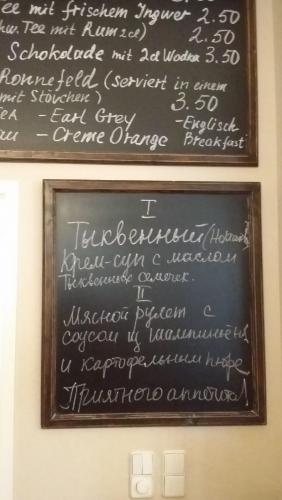 Tee mit frischem Ingwer 2.50
Tee mit Rum 2cl) 2.50
Schokolade mit 2cl Wodka 3.50
Ronnefeld (serviert in einem
mit Stövchen) 3.50
- Earl Grey - Englisch
- Creme Orange Breakfast
I
Тыквенный
Крем-суп с маслом
Тыквенных семечек.
II
Мясной рулет с
соусом из шампиньёна
и картофельным пюре
Приятного аппетита!